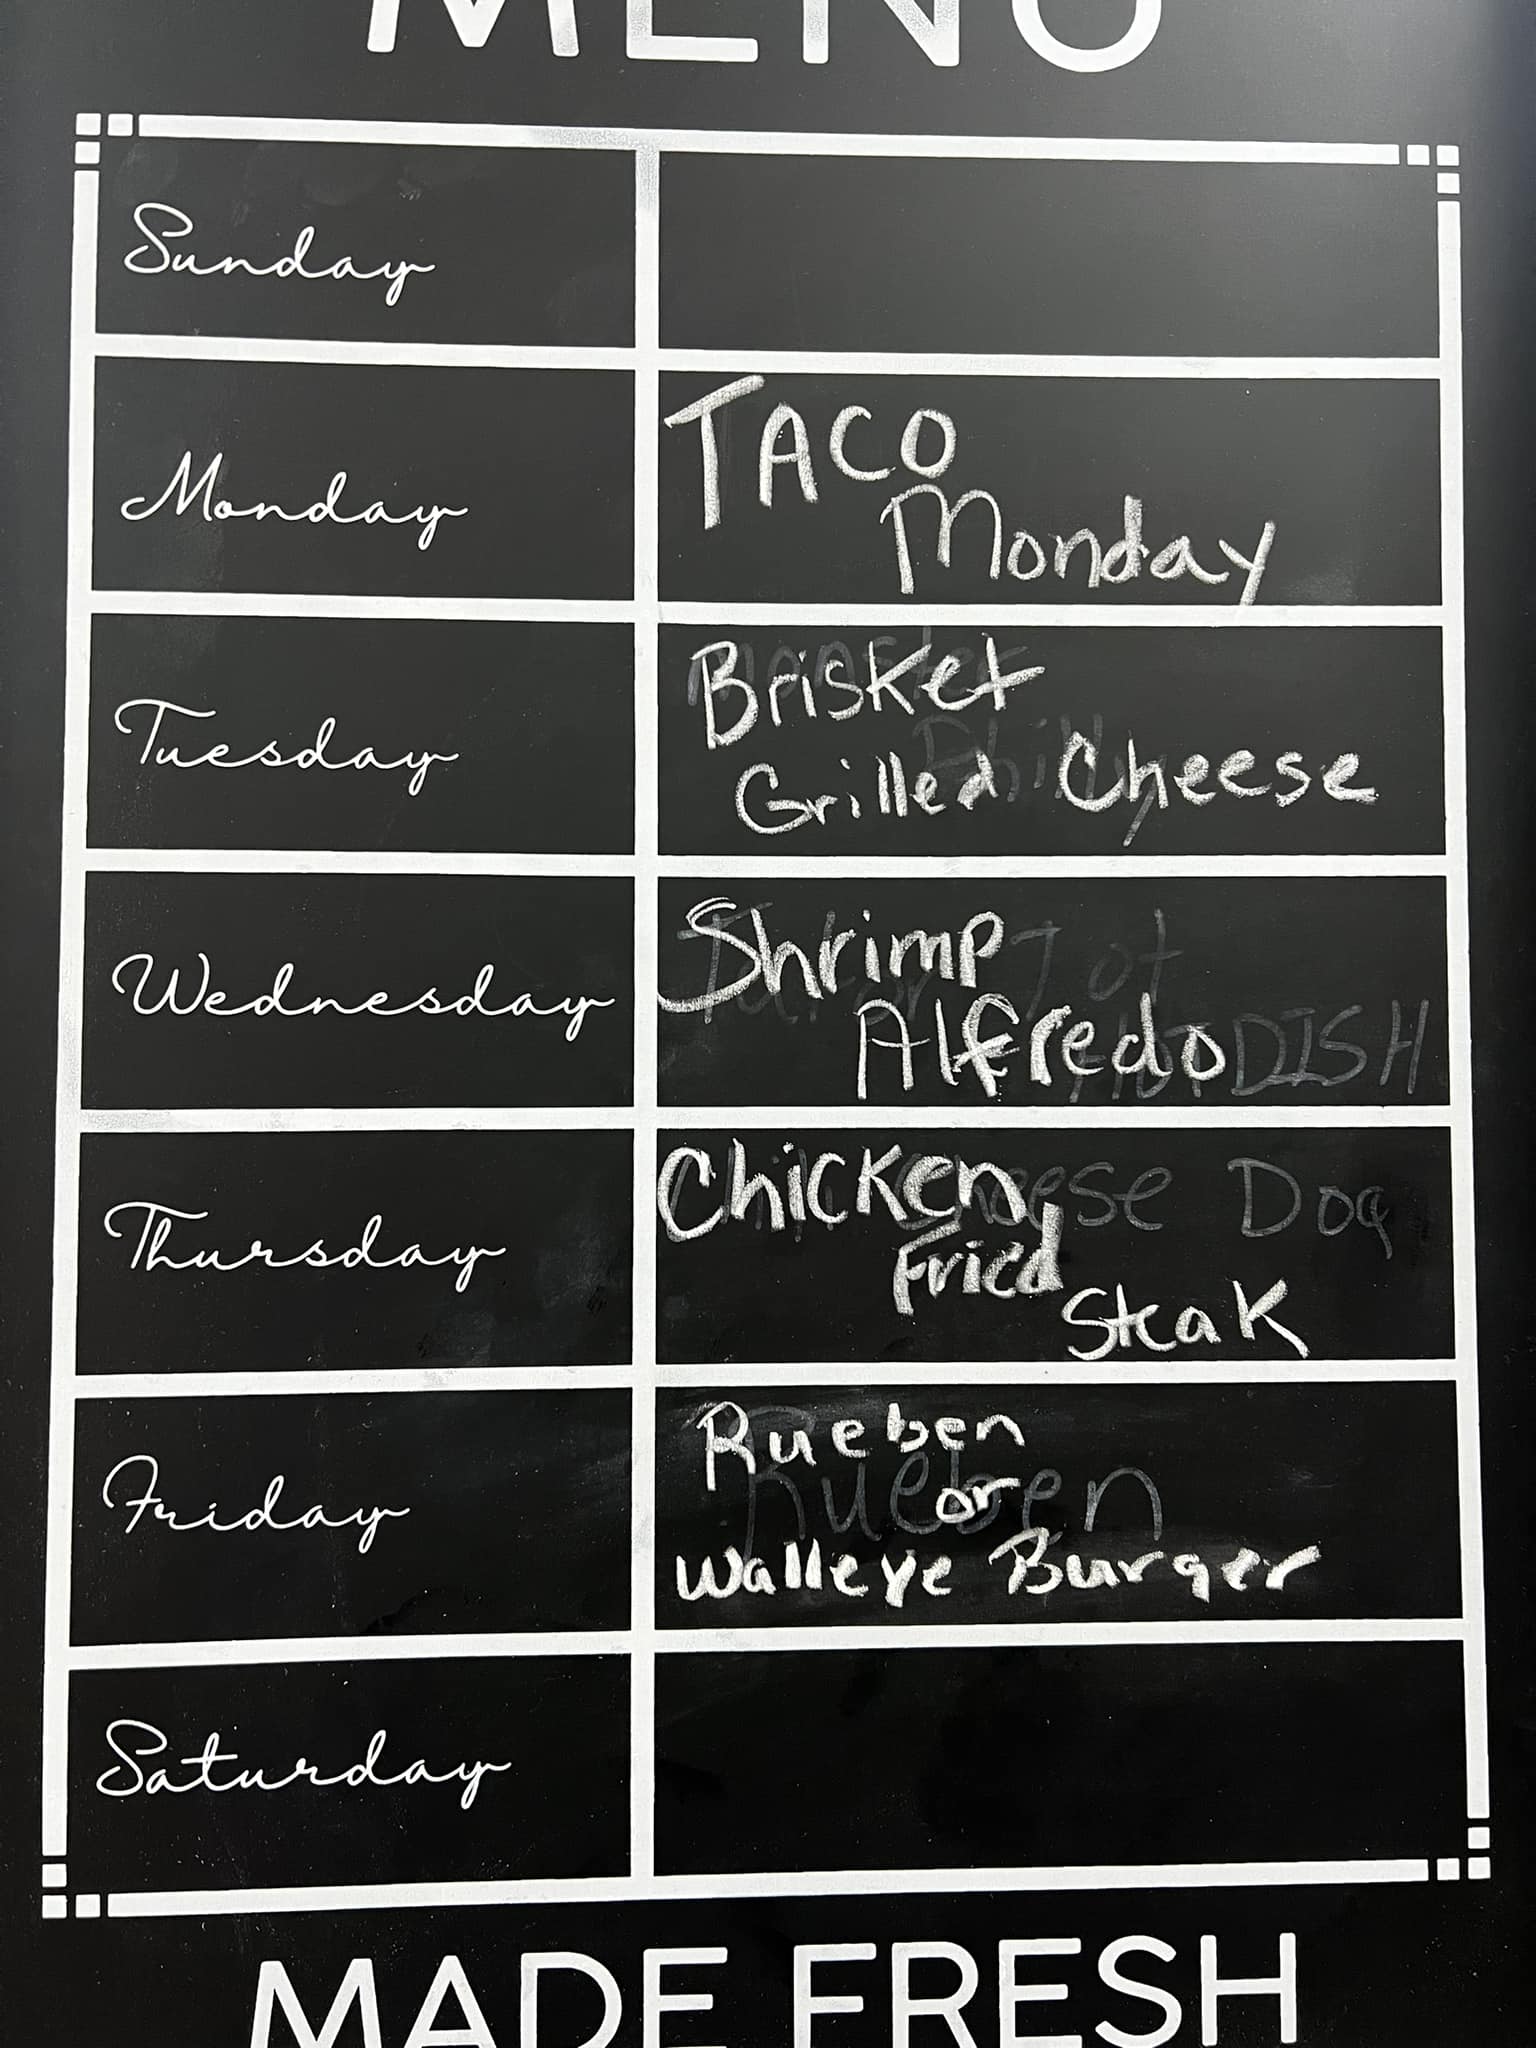 MENU
Sunday
Monday
TACO
Monday
Tuesday
Brisket
Grilled Cheese
Wednesday
Shrimp
Alfredo
DISH
Thursday
Chicken
Fried
Steak
Cheese Dog
Friday
Rueben
or
Walleye Burger
Rueben
Saturday
MADE FRESH